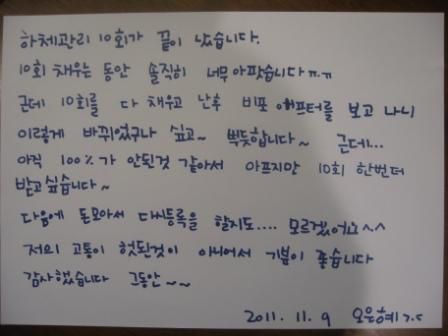 하체관리 10회가 끝이 났습니다.
10회 채우는 동안 솔직히 너무아팟습니다ㅠㅠ
근데 10회를 다 채우고 난후 비포 애프터를 보고 나니
이렇게 바뀌었구나 싶고~ 뿌듯합니다~ 근데...
아직 100%가 안된것 같아서 아프지만 10회 한번더
받고싶습니다~
다음에 돈모아서 다시등록을 할지도.... 모르겠어요^^
저의 고통이 헛된것이 아니어서 기분이 좋습니다
감사했습니다 그동안~~
2011. 11. 9 오은혜